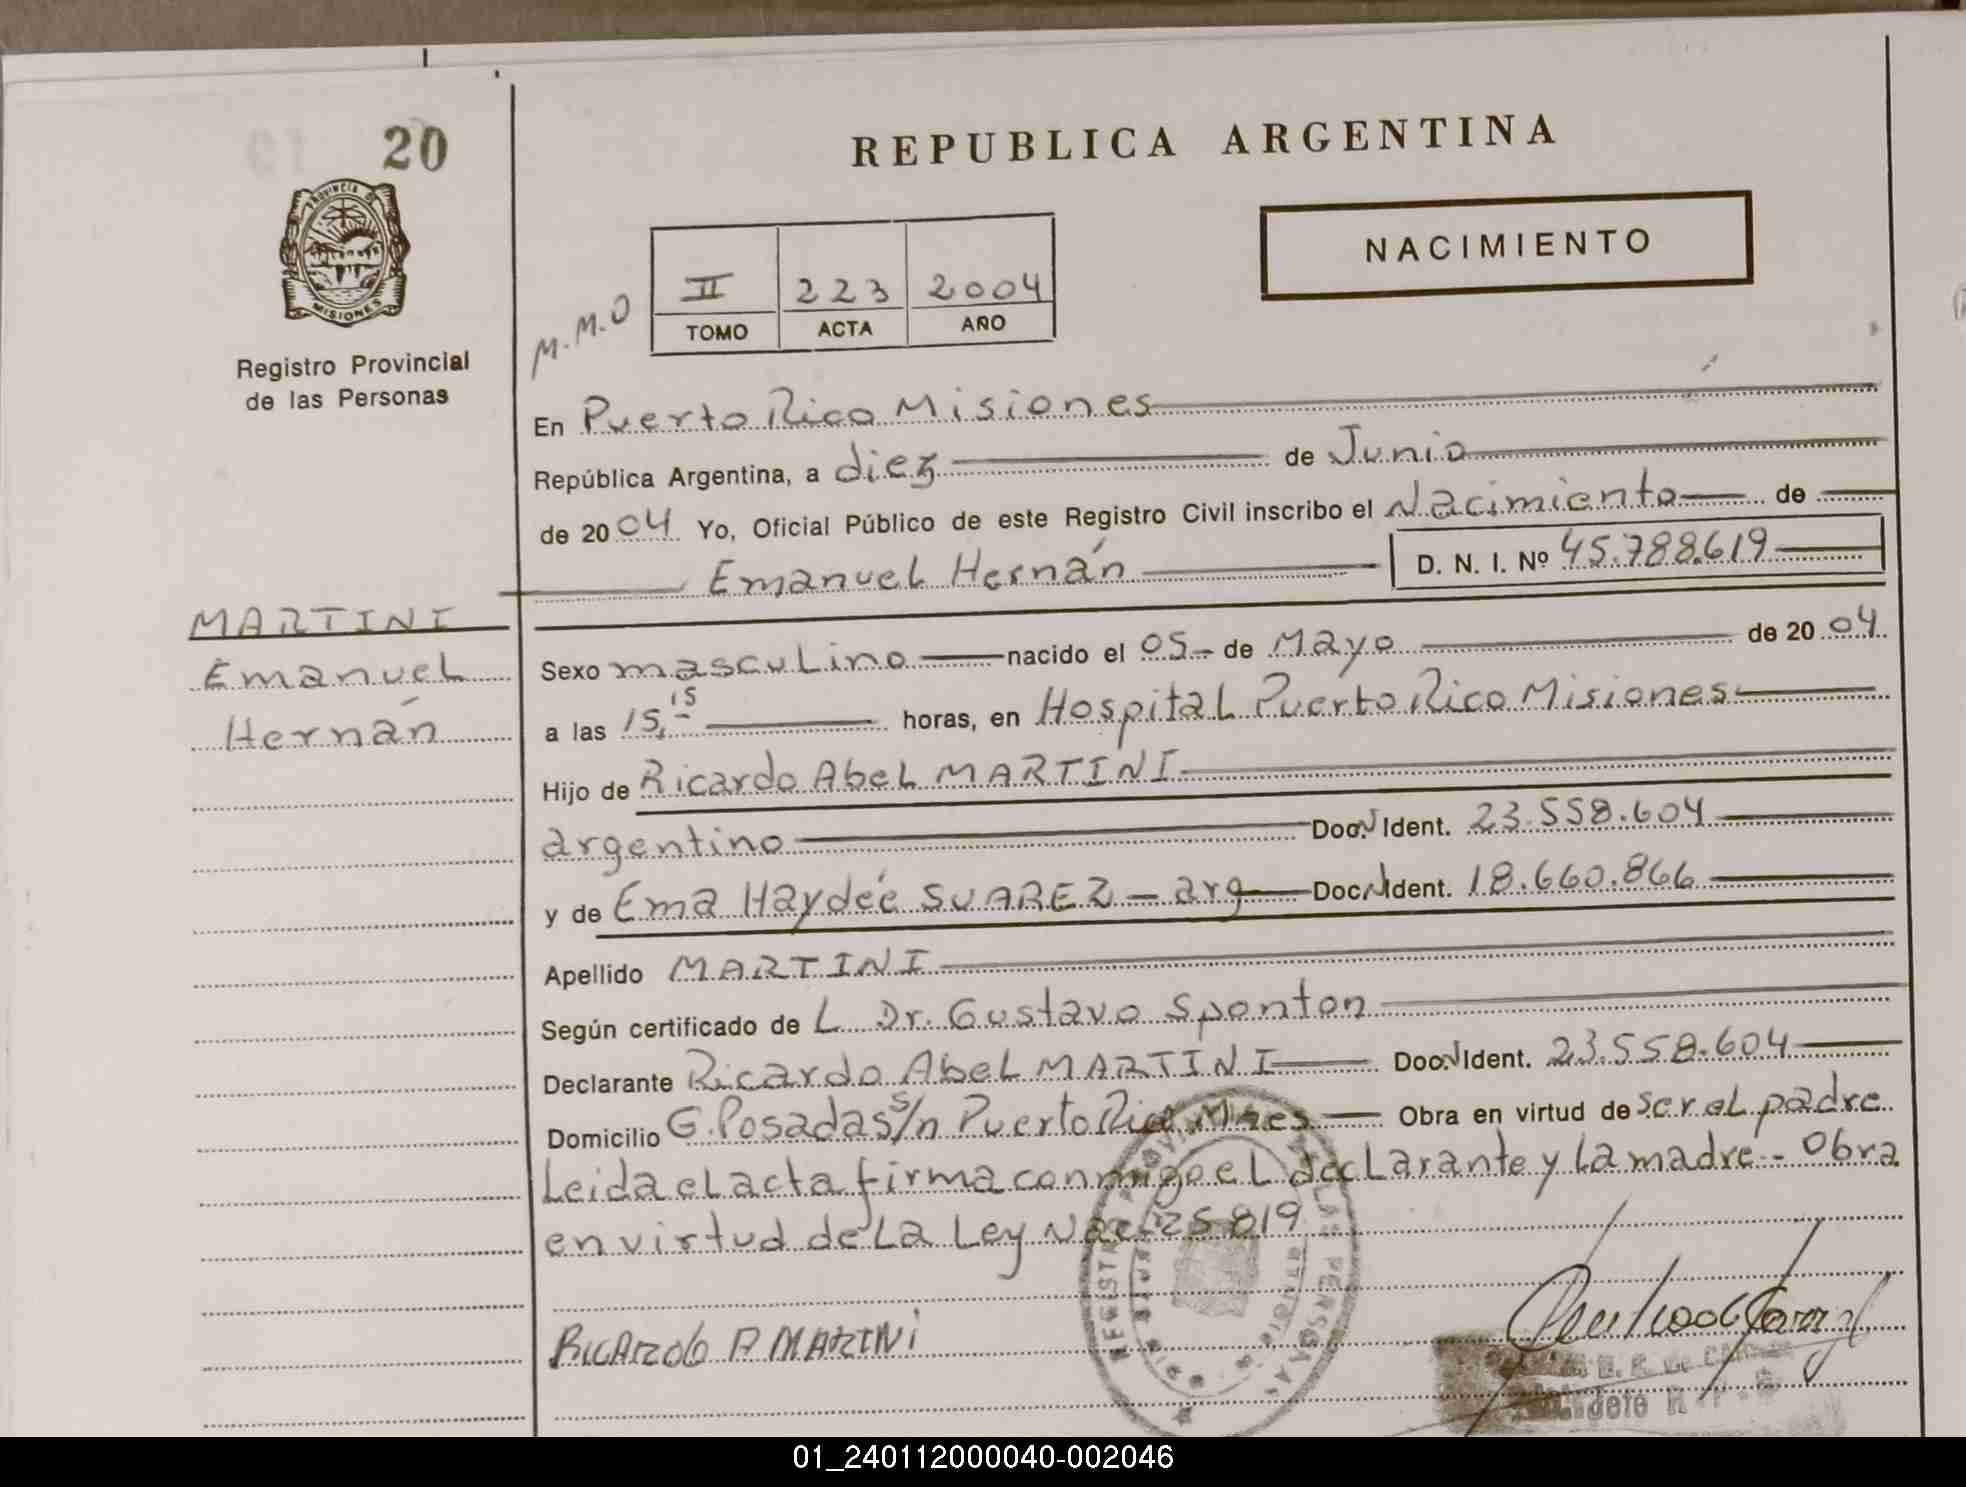 20
REPUBLICA ARGENTINA
PROVINCIA DE
MISIONES
Registro Provincial
de las Personas
M.M.O
II 223 2004
TOMO ACTA AÑO
NACIMIENTO
En Puerto Rico Misiones
República Argentina, a diez de Junio
de 2004 Yo, Oficial Público de este Registro Civil inscribo el Nacimiento de
Emanuel Hernán D. N. I. Nº 45.788.619
MARTINI
Emanuel
Hernán
Sexo masculino nacido el 05 de Mayo de 2004
a las 15,15 horas, en Hospital Puerto Rico Misiones
Hijo de Ricardo Abel MARTINI
argentino Doc. N Ident. 23.558.604
y de Ema Haydée SUAREZ - arg Doc. N Ident. 18.660.866
Apellido MARTINI
Según certificado de L Dr. Gustavo Sponton
Declarante Ricardo Abel MARTINI Doc. N Ident. 23.558.604
Domicilio G. Posadas s/n Puerto Rico Mnes Obra en virtud de ser el padre
Leida el acta firma conmigo el declarante y la madre - Obra
en virtud de la Ley Nac 25 819
RICARDO A MARTINI
01_240112000040-002046